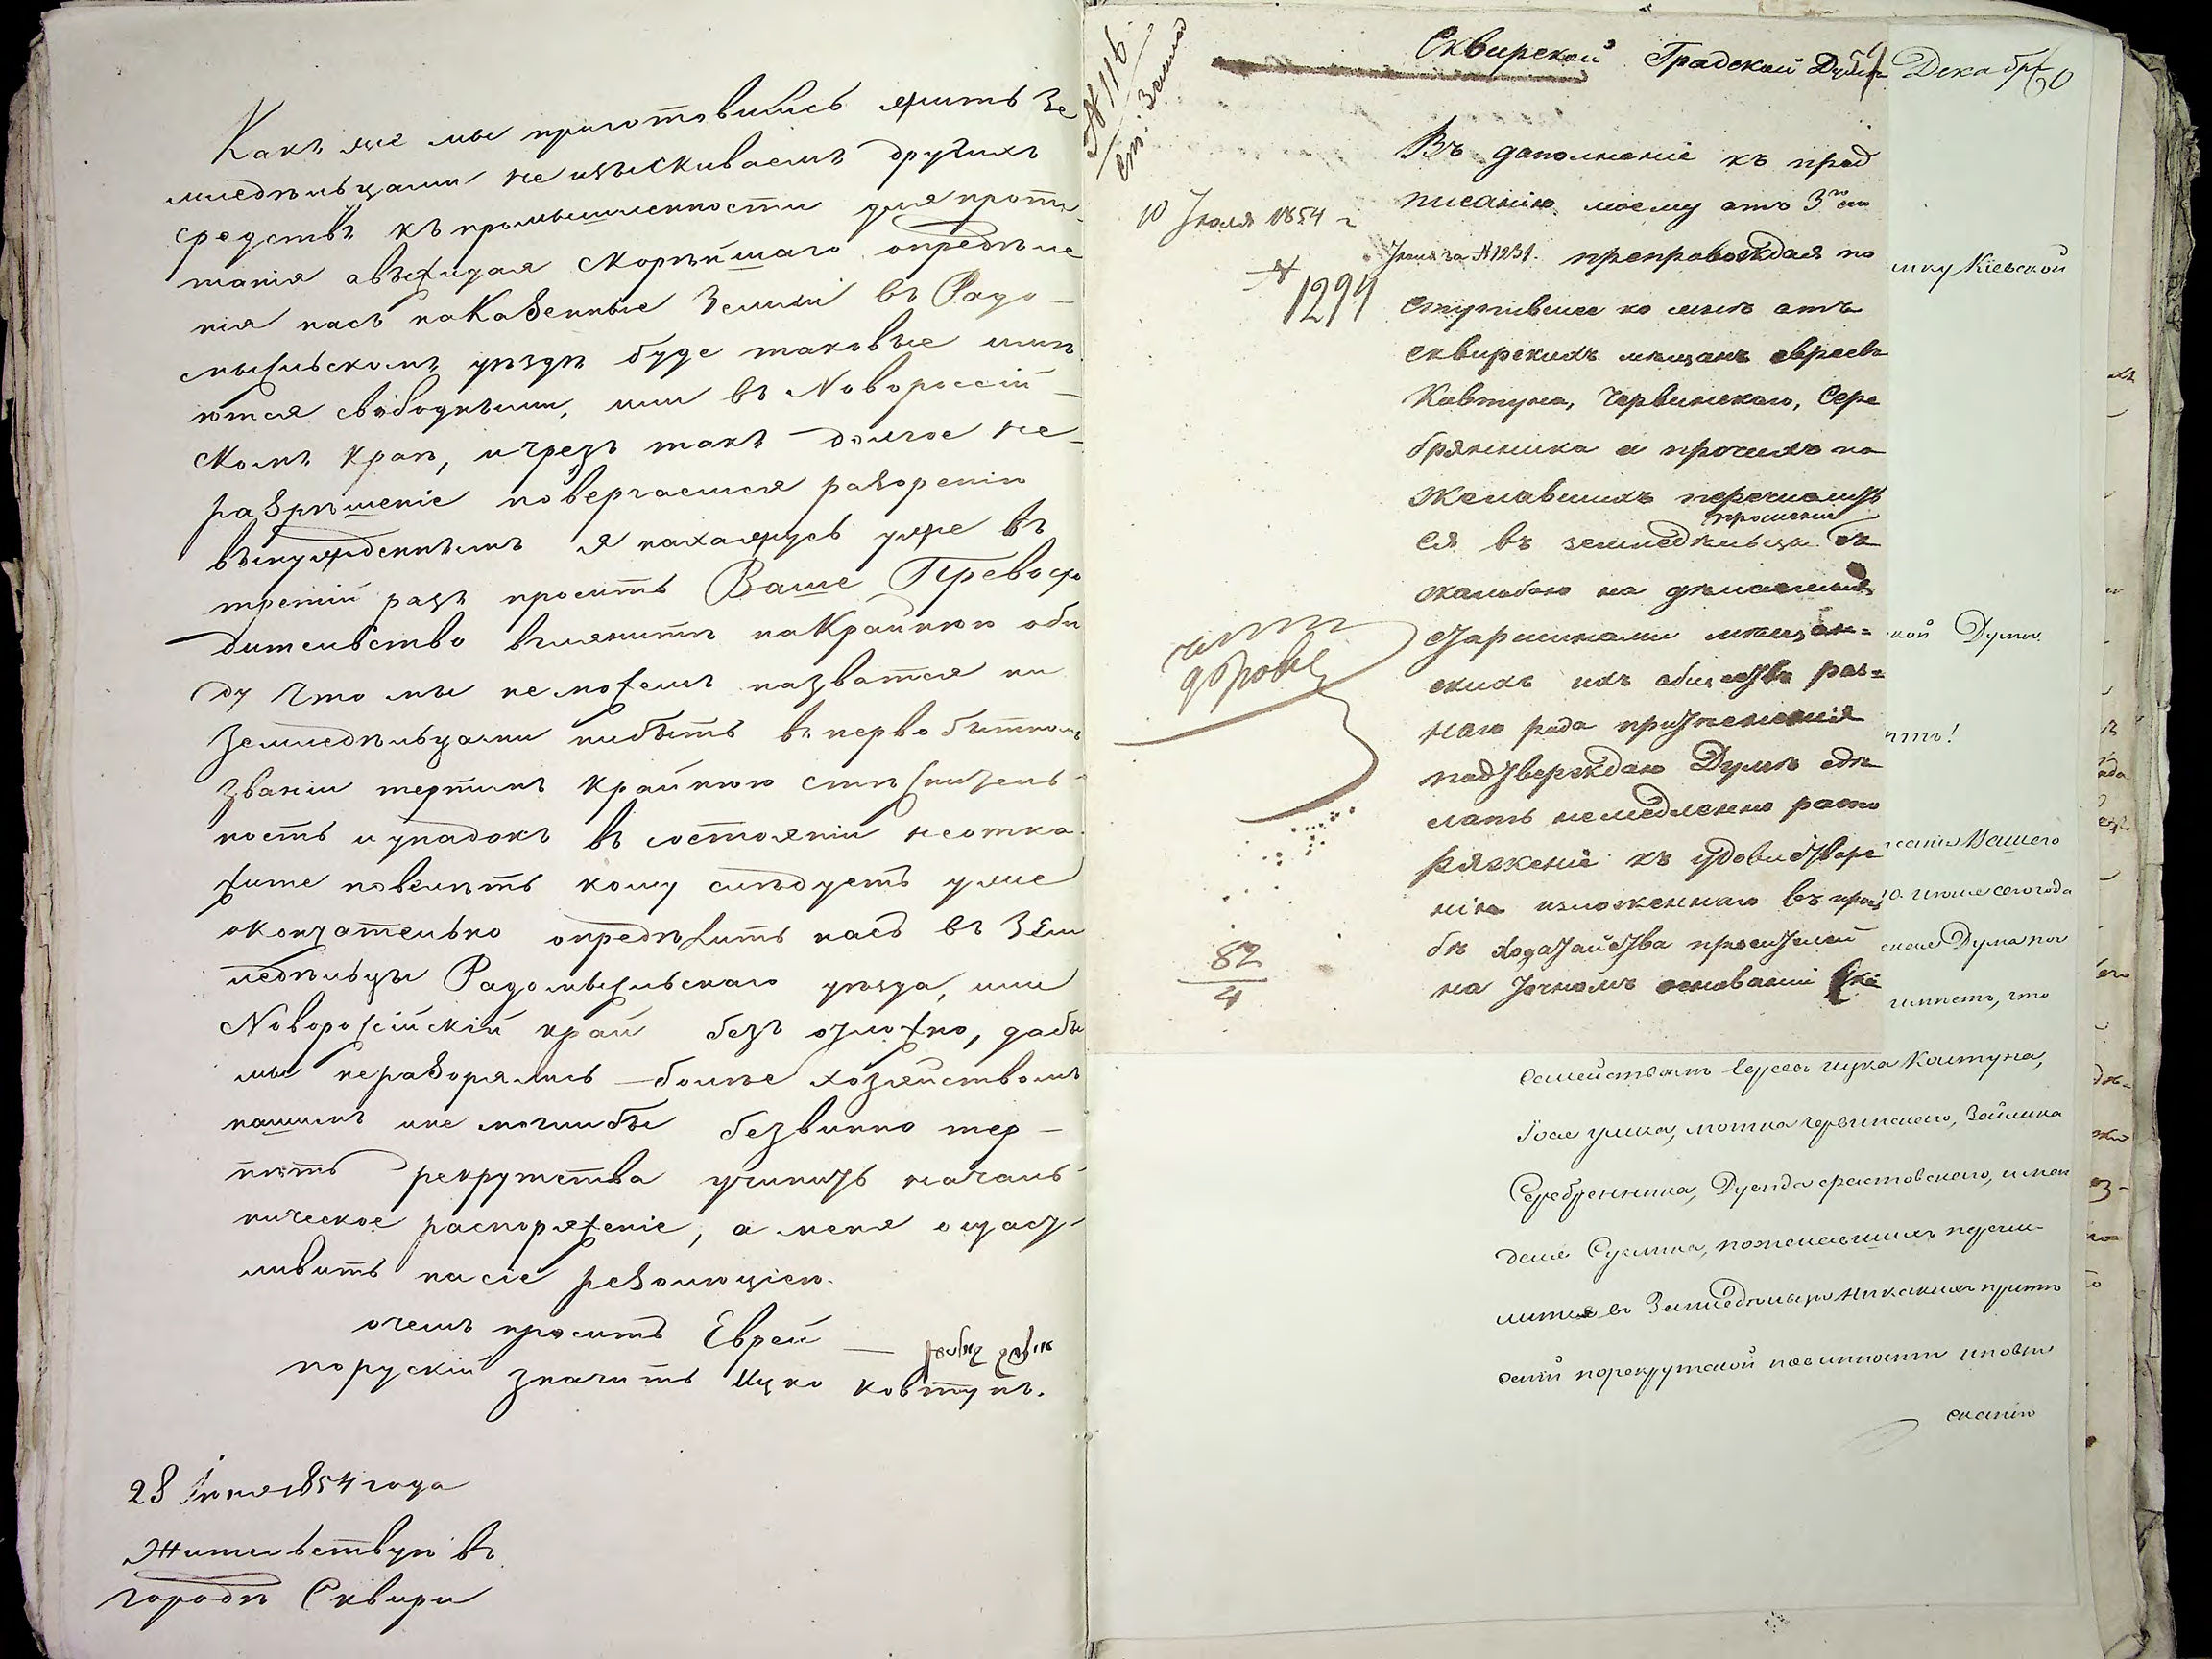 Какъ же мы приготовились жить Зе
мледѣльцами не изъискиваемъ другихъ
средствъ къ промышленности для пропи-
танія а выжидая скорѣйшаго опредѣле
нія насъ на Казенные Земли въ Радо-
мысльскомъ уѣздѣ буде таковые имѣ
ются свободными, или въ Новороссій-
скомъ краѣ, и чрезъ такъ долгое не-
разрѣшеніе повергаемся разоренію
вынужденнымъ я нахожусь уже въ
третій разъ просить Ваше Превосхо
дительство взглянить на Крайнюю оби
ду что мы не можемъ назватся ни
Земледѣльцами нибыть въ первобытномъ
званіи терпимъ крайнюю стѣснитель-
ность и упадокъ въ состояніи неотка-
жите повелѣть кому слѣдуетъ уже
окончательно опредѣлить насъ въ Зем
ледѣльцы Радомысльскаго уѣзда, или
Новоросійскій край безъ отложно, дабы
мы неразорялись болѣе хозяйствомъ
нашимъ и не моглибы безвинно тер-
пѣть рекрутства учинить началь-
ническое распоряженіе, а меня ощаст-
ливить на сіе резолюціею.
о чемъ проситъ Еврей —
порускій значитъ Ицко Ковтунъ.
28 Іюня 1854 года
Жительствую въ
городѣ Сквири
№ 116
Сквирской Градской Думѣ
10 Іюля 1854 г
№ 1294
Въ дополненіе къ пред
писанію моему отъ 3го сего
Іюля за №1231. препровождая по
ступившее ко мнѣ отъ
сквирскихъ мѣщанъ евреевъ
Ковтуна, Червинскаго, Сере
брянника и прочихъ по
желавшихъ перечислить
прошеніе
ся въ земледѣльцы съ
жалобою на дѣлаемыя
старшинами мѣщан=
скихъ ихъ обществъ раз=
наго рода притѣсненія
подтверждаю Думѣ сдѣ
лать немедленно распо
ряженіе къ удовлетворе
нію изложеннаго въ прось
бѣ ходатайства просителей
на точномъ основаніи
82
4
Декабря
60
нику Кіевской
кой Думы.
саніи Вашего
10. июля сего года
Дума по
что
Семействамъ Евреевъ Ицка Ковтуна,
мотка Червинскаго, Зейлика
Серебренника,
пожелавшимъ перечи-
литься въ Земледѣльцы никакихъ притѣ
сеній порекрутской повинности
сканію